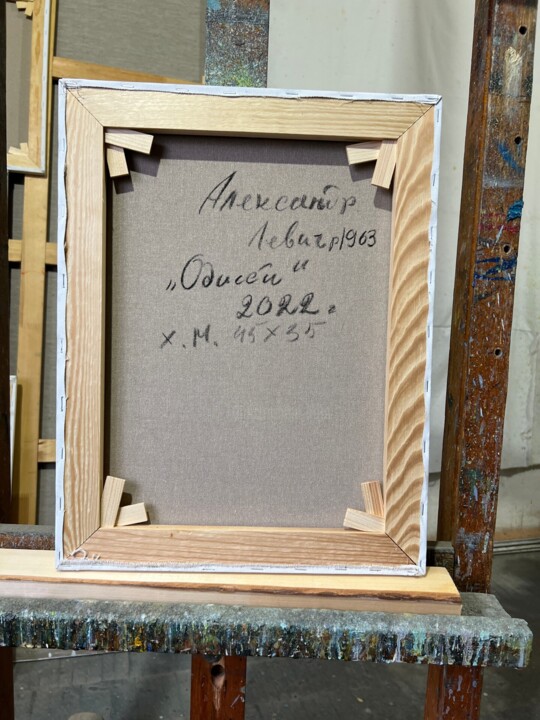 Александр
Левич р/1963
„Одисей"
2022 г
х.м. 45х35